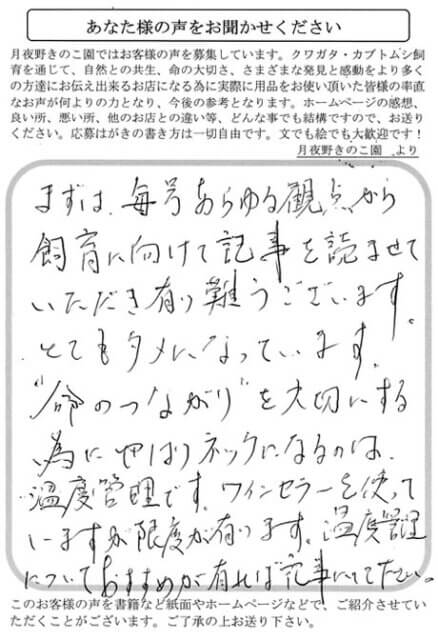 あなた様の声をお聞かせください
月夜野きのこ園ではお客様の声を募集しています。クワガタ・カブトムシ飼
育を通じて、自然との共生、命の大切さ、さまざまな発見と感動をより多く
の方達にお伝え出来るお店になる為に実際に用品をお使い頂いた皆様の率直
なお声が何よりの力となり、今後の参考となります。ホームページの感想、
良い所、悪い所、他のお店との違い等、どんな事でも結構ですので、お送り
ください。応募はがきの書き方は一切自由です。文でも絵でも大歓迎です！
月夜野きのこ園 より
まずは、毎号あらゆる観点から
飼育に向けて記事を読ませて
いただき有り難うございます。
とてもタメになっています。
“命のつながり”を大切にする
為にやはりネックになるのは、
温度管理です。ワインセラーを使って
いますが限度が有ります。温度管理
についておすすめが有れば記事にして下さい。
このお客様の声を書籍など紙面やホームページなどで、ご紹介させてい
ただくことがございます。ご了承の上お送り下さい。